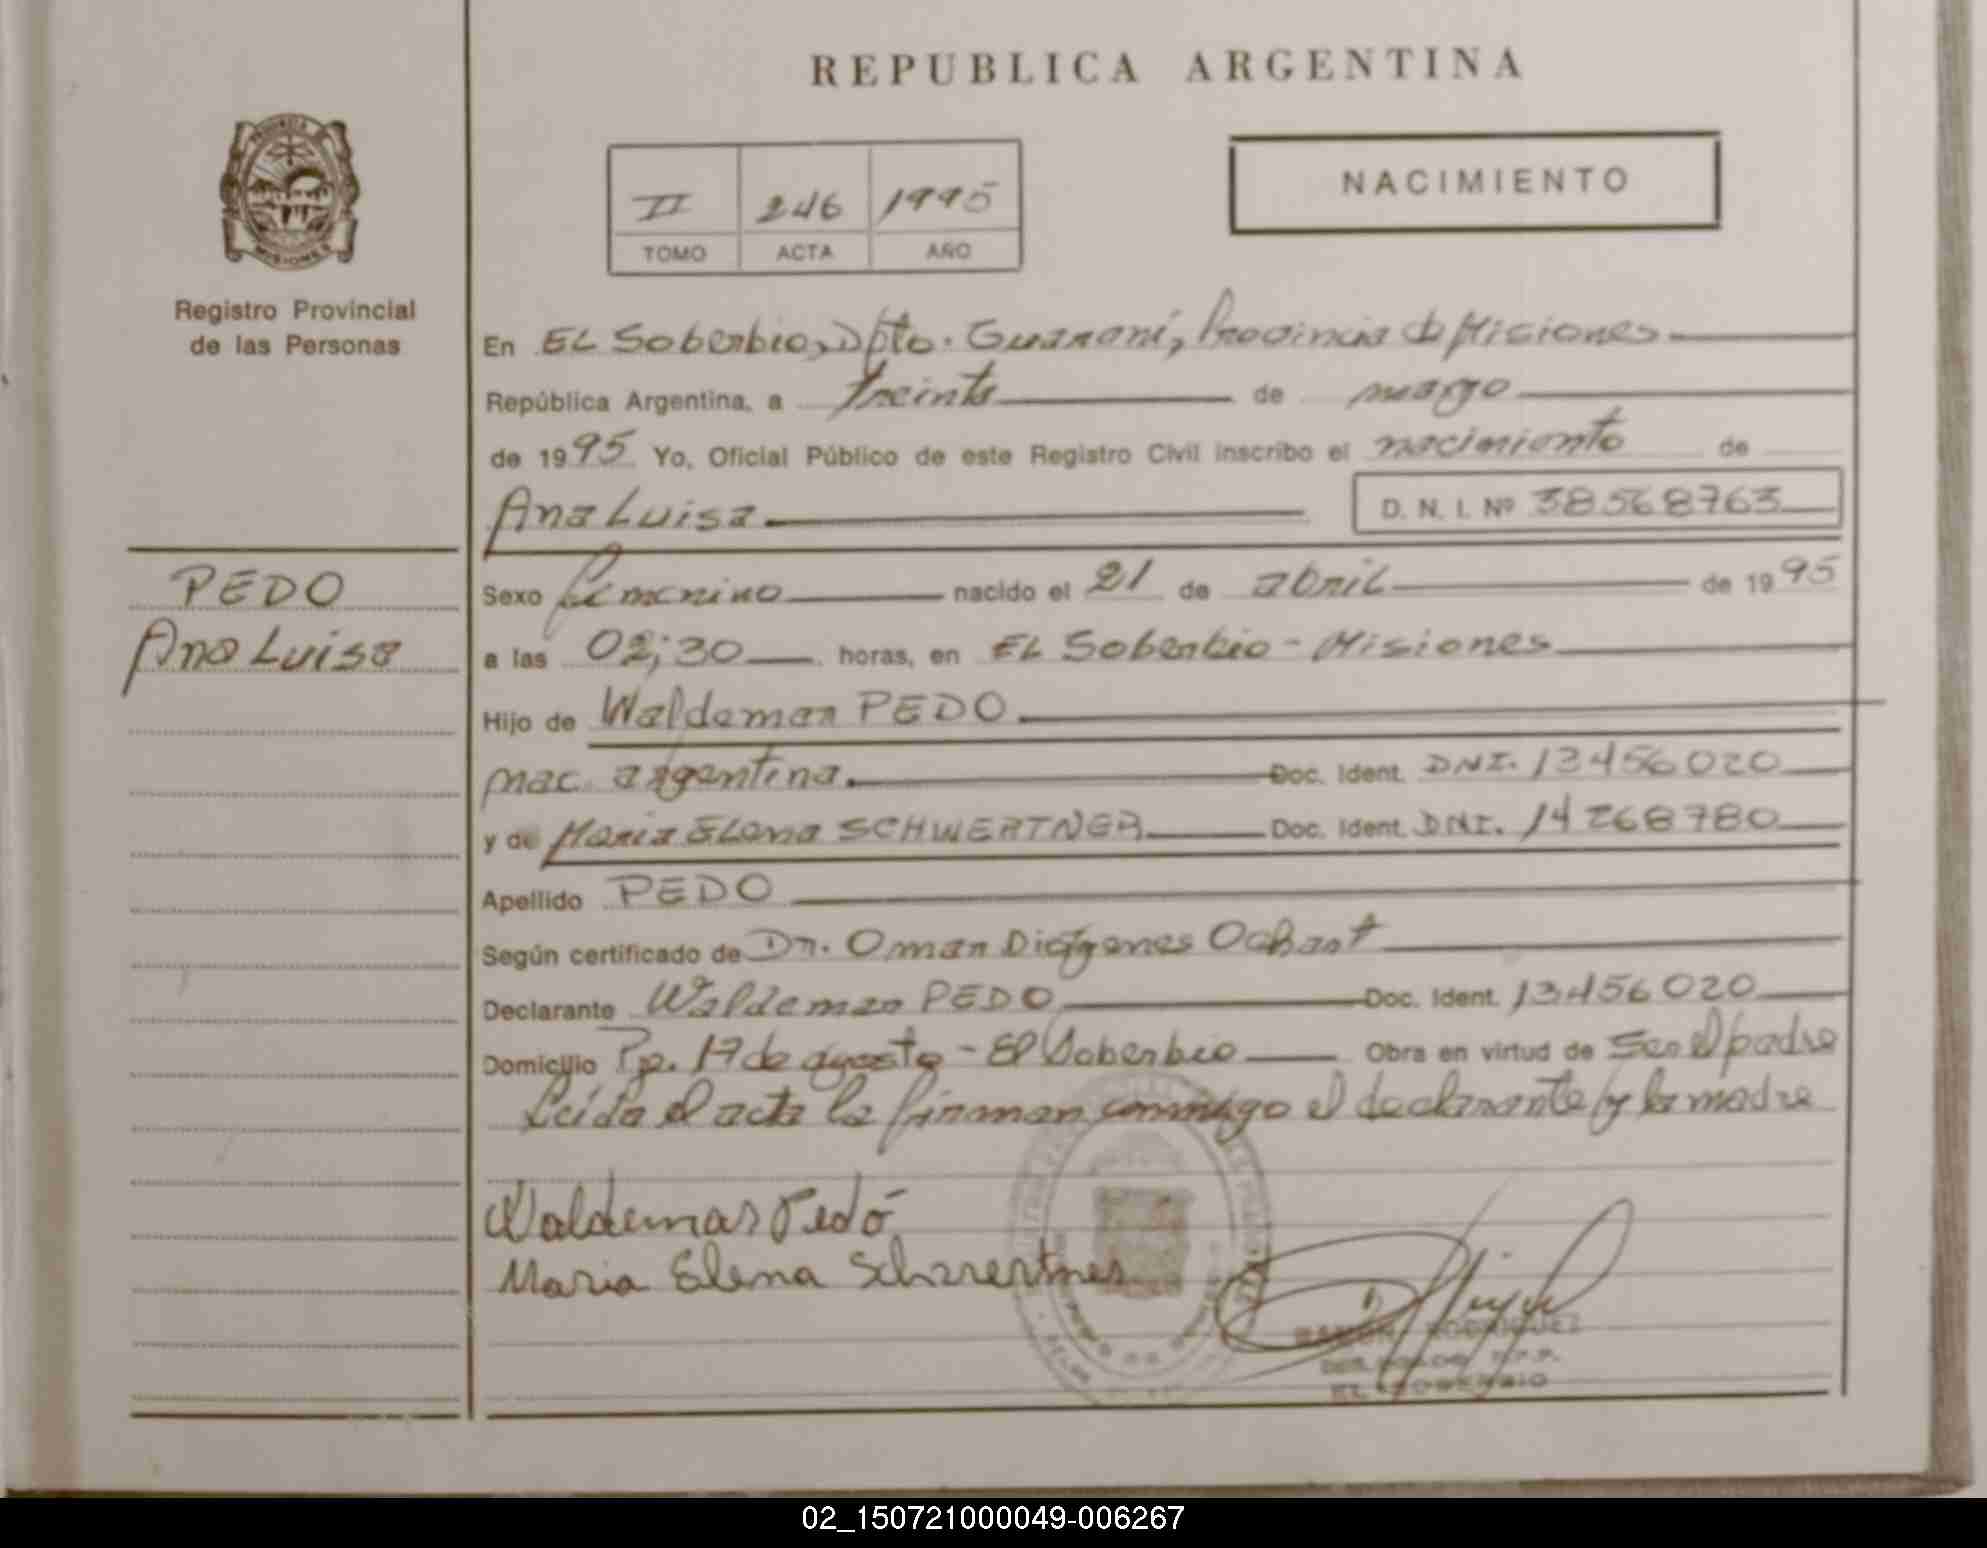 REPUBLICA ARGENTINA
PROVINCIA DE
MISIONES
Registro Provincial
de las Personas
II 246 1995
TOMO ACTA AÑO
NACIMIENTO
En EL Soberbio, Dpto. Guaraní, Provincia de Misiones
República Argentina, a treinta de
de 1995 Yo, Oficial Público de este Registro Civil inscribo el nacimiento de
Ana Luisa D. N. I. Nº 38568763
PEDO
Ana Luisa
Sexo femenino nacido el 21 de abril de 1995
a las 02;30 horas, en EL Soberbio - Misiones
Hijo de Waldemar PEDO
nac. argentina. Doc. Ident. DNI. 13456020
y de Maria Elena SCHWERTNER Doc. Ident. DNI. 14268780
Apellido PEDO
Según certificado de Dr. Omar Diógenes
Declarante Waldemar PEDO Doc. Ident. 13456020
Domicilio Pje. 17 de agosto - El Soberbio Obra en virtud de ser el padre
Leída el acta la firman conmigo el declarante y la madre
Waldemar Pedó
Maria Elena Schwertner
RAMON RODRIGUEZ
R.P.P.
EL SOBERBIO
02_150721000049-006267